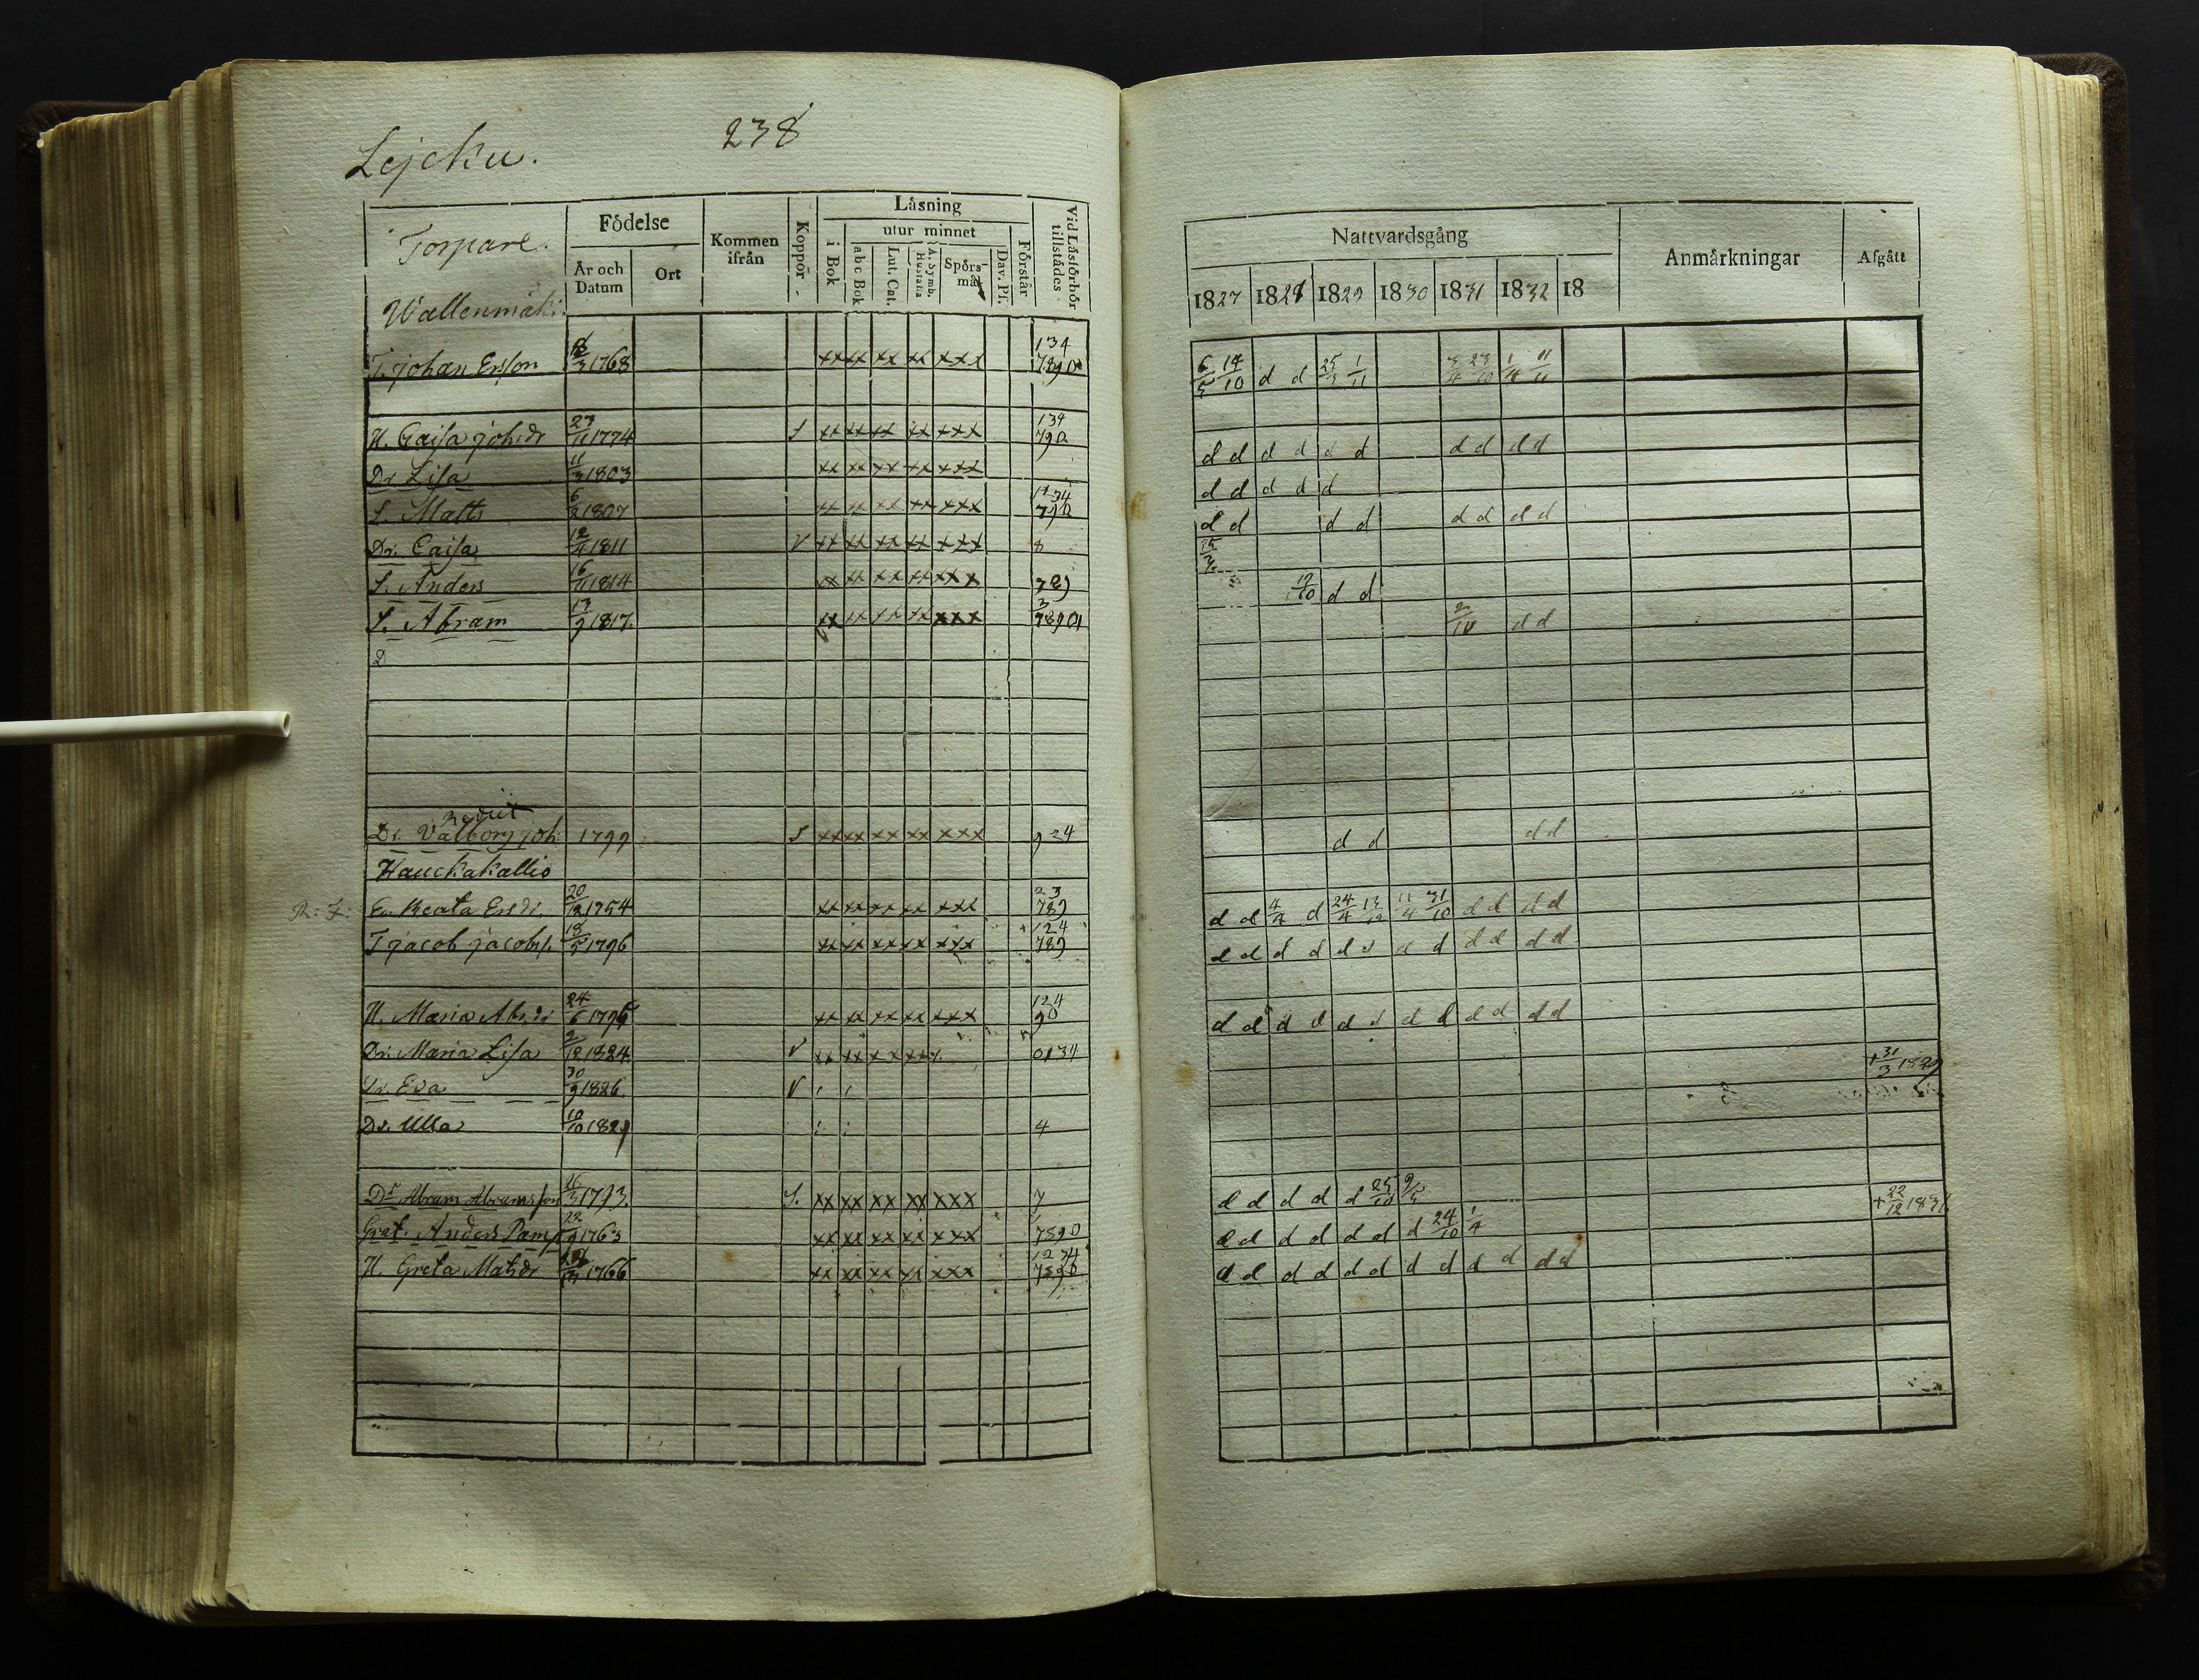 238
Lejcku.
Torpare.
Födelse
År och Datum
Ort
Kommen ifrån
Koppor
Läsning
i Bok
utur minnet
abc Bok
Lut. Cat.
A. Symb. Hustafla
Spörsmål
Dav. Pf.
Förstår
Vid Läsförhör tillstädes
Nattvardsgång
1827 1828 1829 1830 1831 1832 18
Anmärkningar
Afgått
Wallenmäki
T. Johan Ersson 3 1768 xx xx xx xx xxx 134 7890 6/5 14/10 d d 25/3 1/11 3/4 23/10 1/4 11/11
H. Caisa Joh:dr 23/11 1774 S xx xx xx xx xxx 134 790 d d d d d d d d d d
Dr Lisa 11/3 1803 xx xx xx xx xxx d d d d d
S. Matts 6/2 1807 xx xx xx xx xxx 1134 790 d d d d d d d d
Dr. Caisa 12/4 1811 V xx xx xx xx xxx 8 25/3
S. Anders 16/11 1814 xx xx xx xx xxx 789 19/10 d d
S. Abram 13/9 1817. xx xx xx xx xxx 3 78901 2/10 d d
D
Rediit
Dr. Valborg Joh: 1799 S xx xx xx xx xxx 934 d d d d
Hauckakallio
R: F: Ea Beata Ersdr. 20/12 1754 xx xx xx xx xxx 23 789 d d 4/4 d 24/4 13/12 11/4 31/10 d d d d
T Jacob Jacobs. 18/5 1796 xx xx xx xx xxx 124 789 d d d d d d d d d d d d
H. Maria Abr.dr 24/6 1795 xx xx xx xx xxx 124 90 d d d d d d d d d d d d
Dr. Maria Lisa 2/12 1824. V xx xx x x xx 0134
Dr. Eva 30/9 1826. V + 31/3 1829
Dr. Ulla 10/10 1829 4
Dr Abram Abramsson 3 1793. S. xx xx xx xx xxx 7 d d d d d 25/10 9/5
Graf. Anders Pamp 22/9 1763 xx xx xx xx xxx 7890 d d d d d d d 24/10 1/4 + 22/12 1831
H. Greta Matsdr 1766 xx xx xx xx xxx 1234 7890 d d d d d d d d d d d d